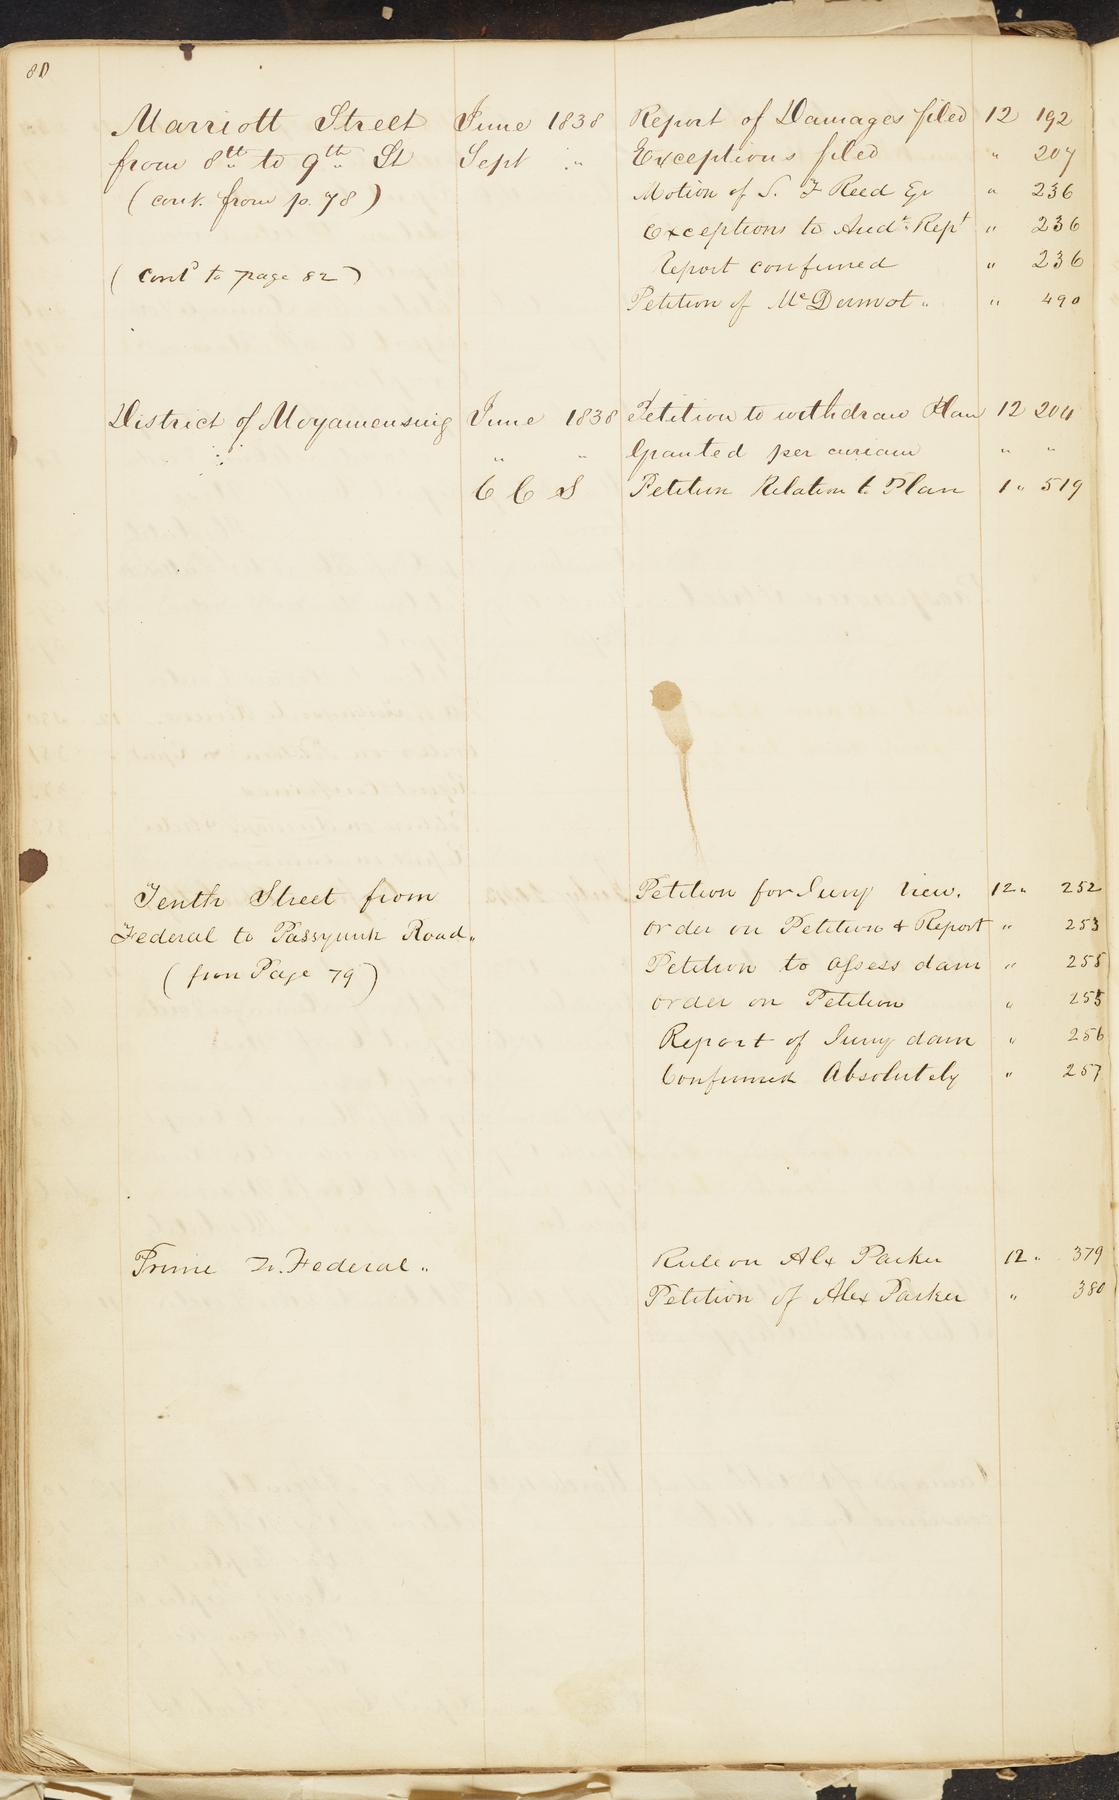 80
Marriott Street June 1838 Report of Damages filed 12 192
from 8th to 9th St Sept " Exceptions filed " 207
(cont. from p. 78) Motion of S. F Reed Eq " 236
Exceptions to Audt. Rept " 236
(contd to page 82) Report confirmed " 236
Petition of McDermot " " 490
District of Moyamensing June 1838 Petition to withdraw Plan 12 204
" " Granted per curiam " "
C C S Petition Relation to Plan 1 " 519
Tenth Street from Petition for Jury View. 12 " 252
Federal to Passyunk Road " order on Petition & Report " 253
(from Page 79) Petition to assess dam " 255
order on Petition " 255
Report of Jury dam " 256
Confirmed Absolutely " 257
Prime n. Federal " Rule on Alex Parker 12 " 379
Petition of Alex Parker " 380